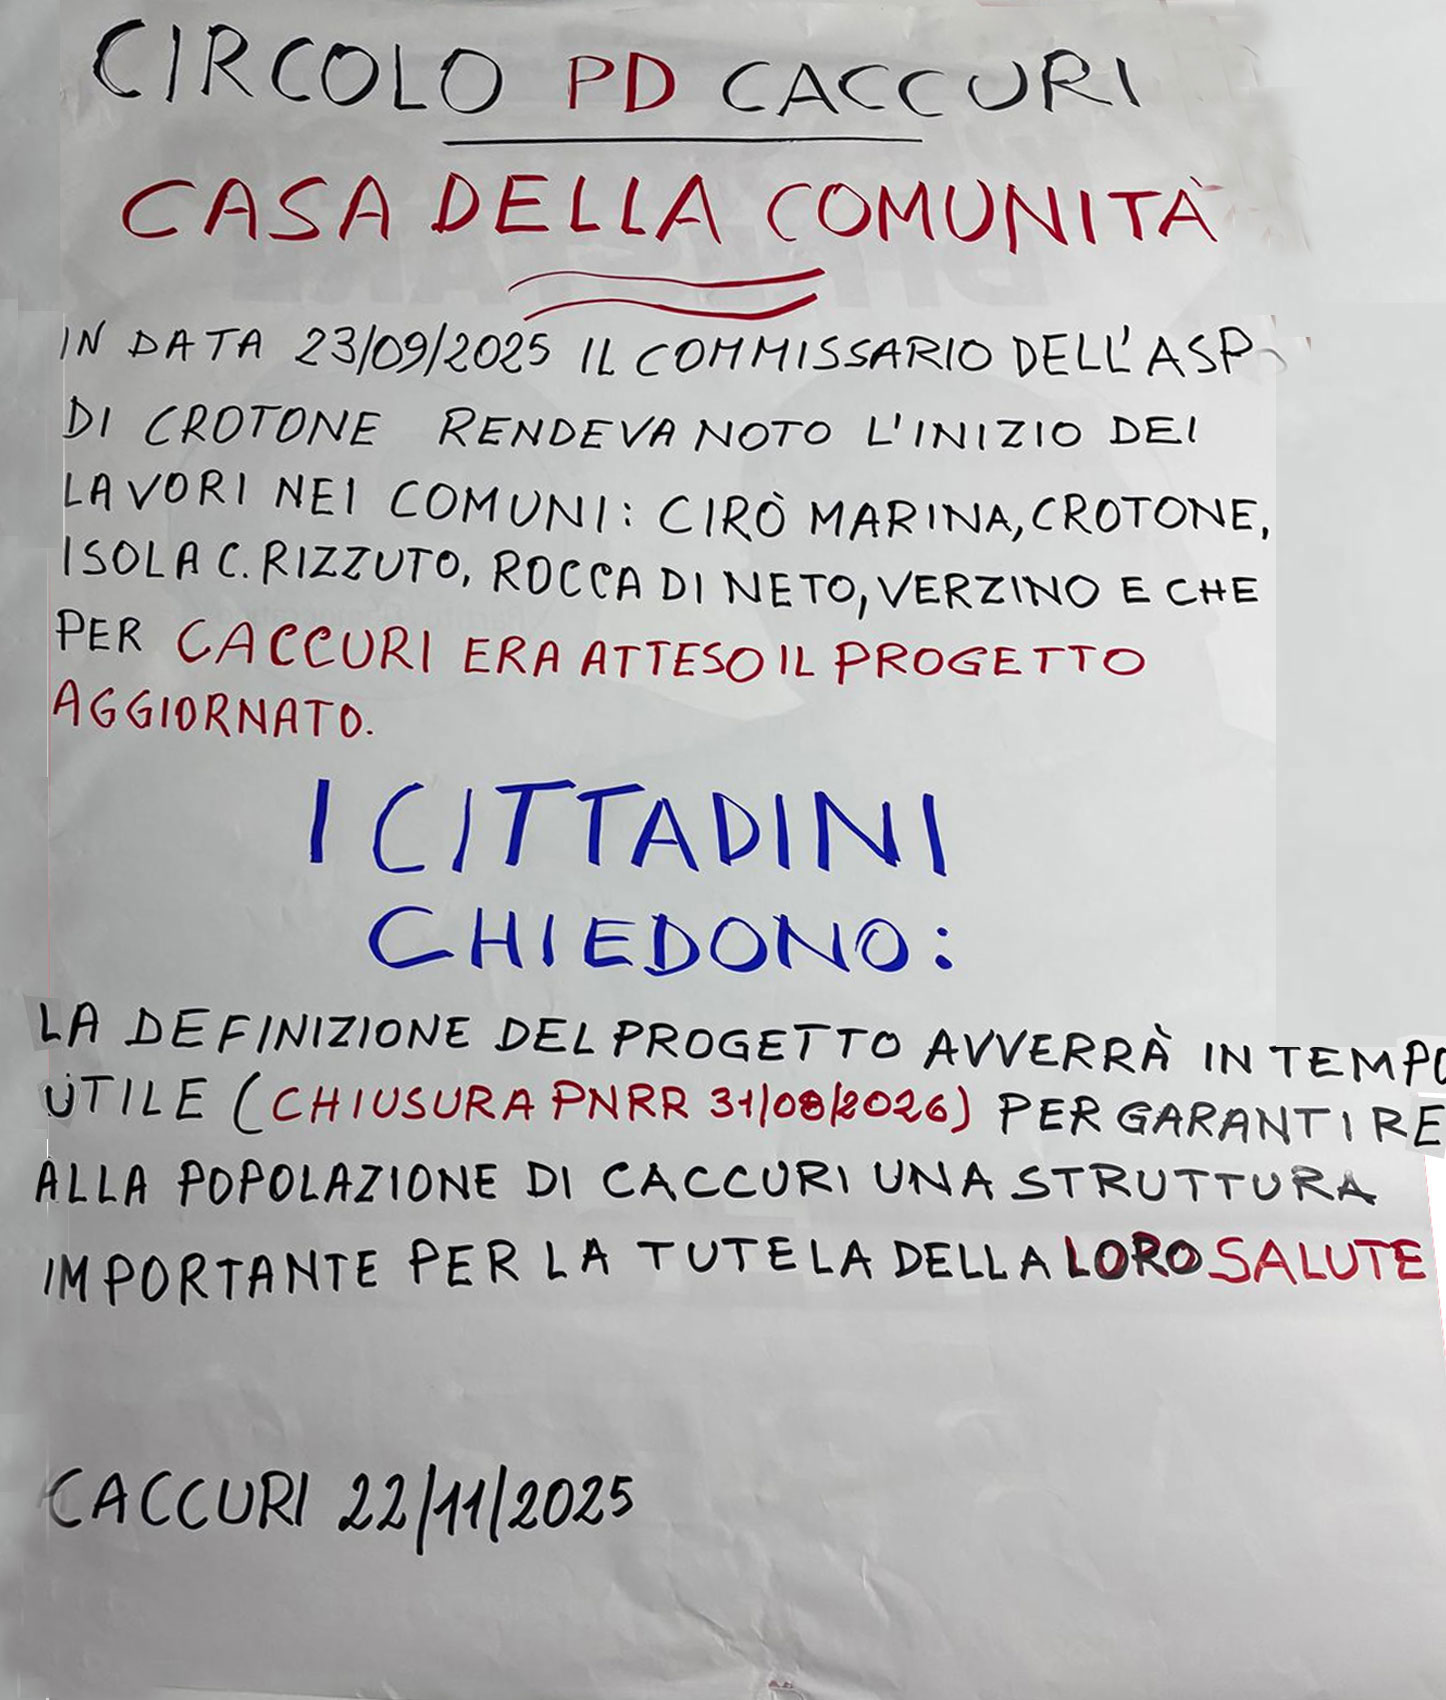 CIRCOLO PD CACCURI
CASA DELLA COMUNITÀ
IN DATA 23/09/2025 IL COMMISSARIO DELL'ASP
DI CROTONE RENDEVA NOTO L'INIZIO DEI
LAVORI NEI COMUNI: CIRÒ MARINA, CROTONE,
ISOLA C. RIZZUTO, ROCCA DI NETO, VERZINO E CHE
PER CACCURI ERA ATTESO IL PROGETTO
AGGIORNATO.
I CITTADINI
CHIEDONO:
LA DEFINIZIONE DEL PROGETTO AVVERRÀ IN TEMPO
UTILE (CHIUSURA PNRR 31/08/2026) PER GARANTIRE
ALLA POPOLAZIONE DI CACCURI UNA STRUTTURA
IMPORTANTE PER LA TUTELA DELLA LORO SALUTE
CACCURI 22/11/2025